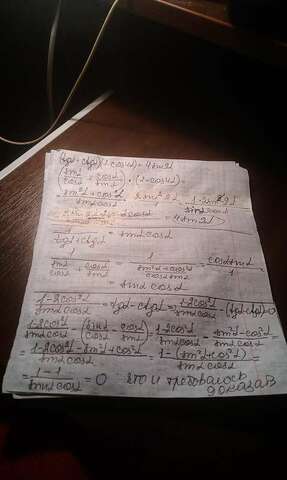 (tgα + ctgα)(1-cos4α) = 4sin2α
(sinα/cosα + cosα/sinα) · (1-cos4α) =
sin²α + cos²α / sinα cosα · 2sin²2α
= 4sin2α
1/tgα+ctgα = sinα cosα
1/(sinα/cosα + cosα/sinα) = 1/(sin²α+cos²α/sinα cosα) = cosα sinα/1
= sinα cosα
1-2cos²α/sinα cosα = tgα - ctgα = 1-2cos²α/sinα cosα - (tgα-ctgα)=0
1-2cos²α/sinα cosα - (sinα/cosα - cosα/sinα) = 1-2cos²α/sinα cosα - sin²α-cos²α/sinα cosα =
= 1-2cos²α-sin²α+cos²α/sinα cosα = 1-(sin²α+cos²α)/sinα cosα =
= 1-1/sinα cosα = 0 что и требовалось
доказать